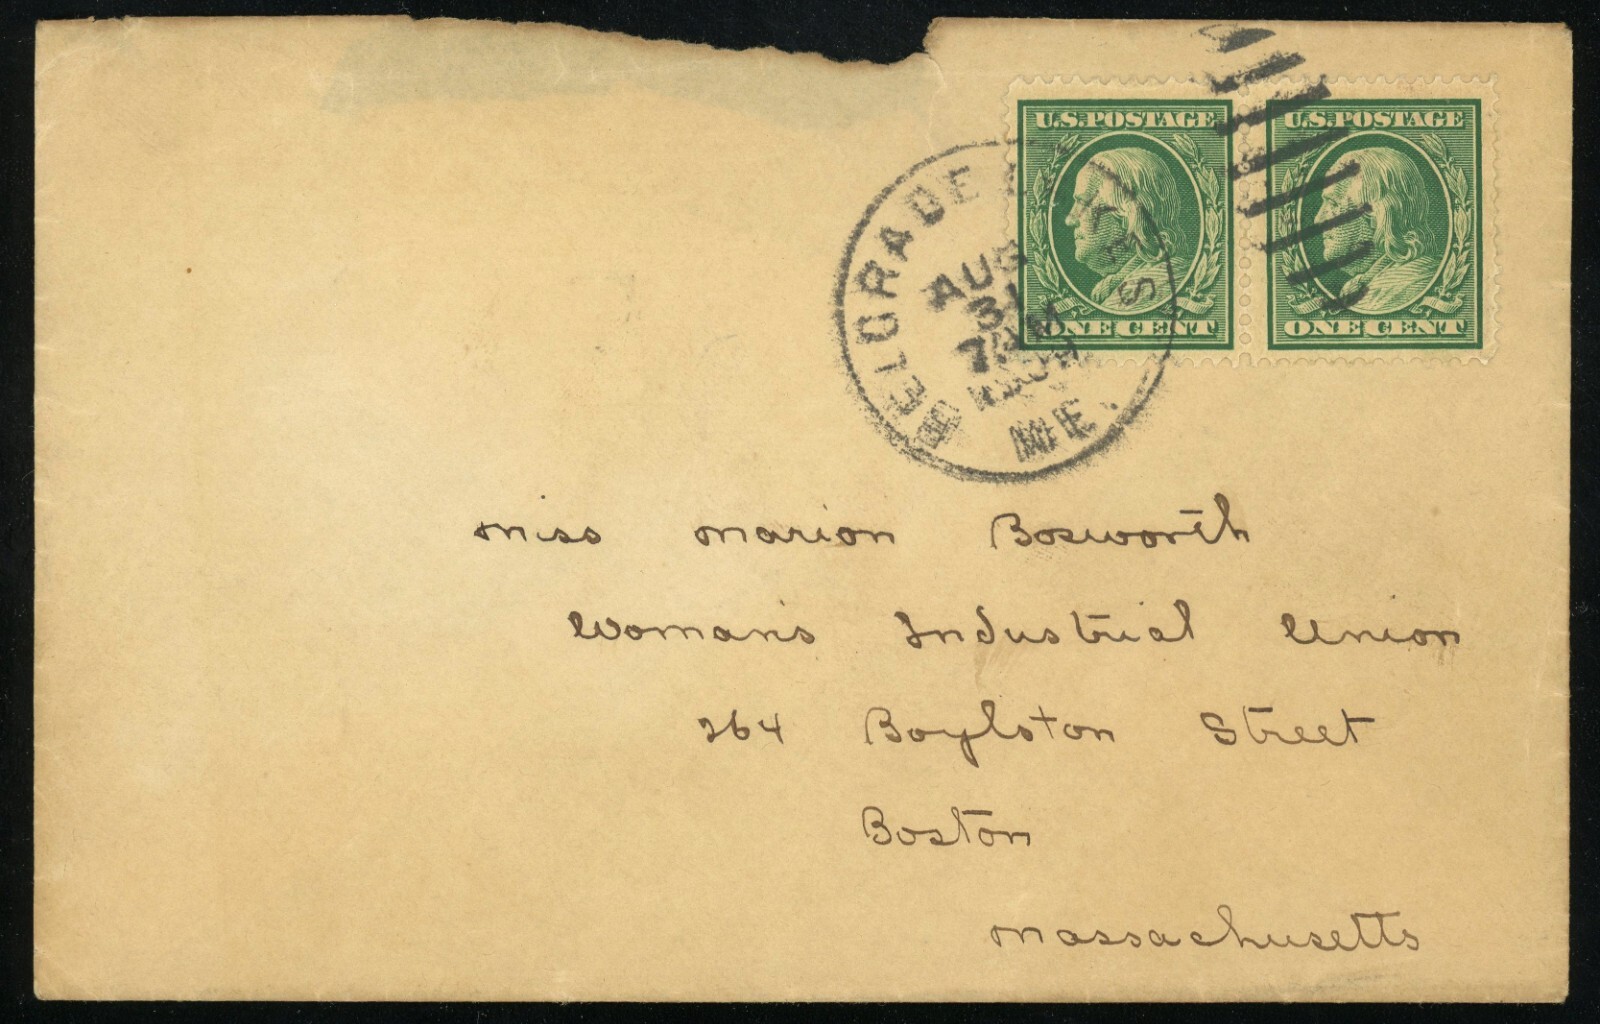 U.S. POSTAGE
ONE CENT
U.S. POSTAGE
ONE CENT
BELGRADE LAKES
AUG
31
7 AM
ME.
Miss Marion Bosworth
Woman's Industrial Union
264 Boylston Street
Boston
Massachusetts